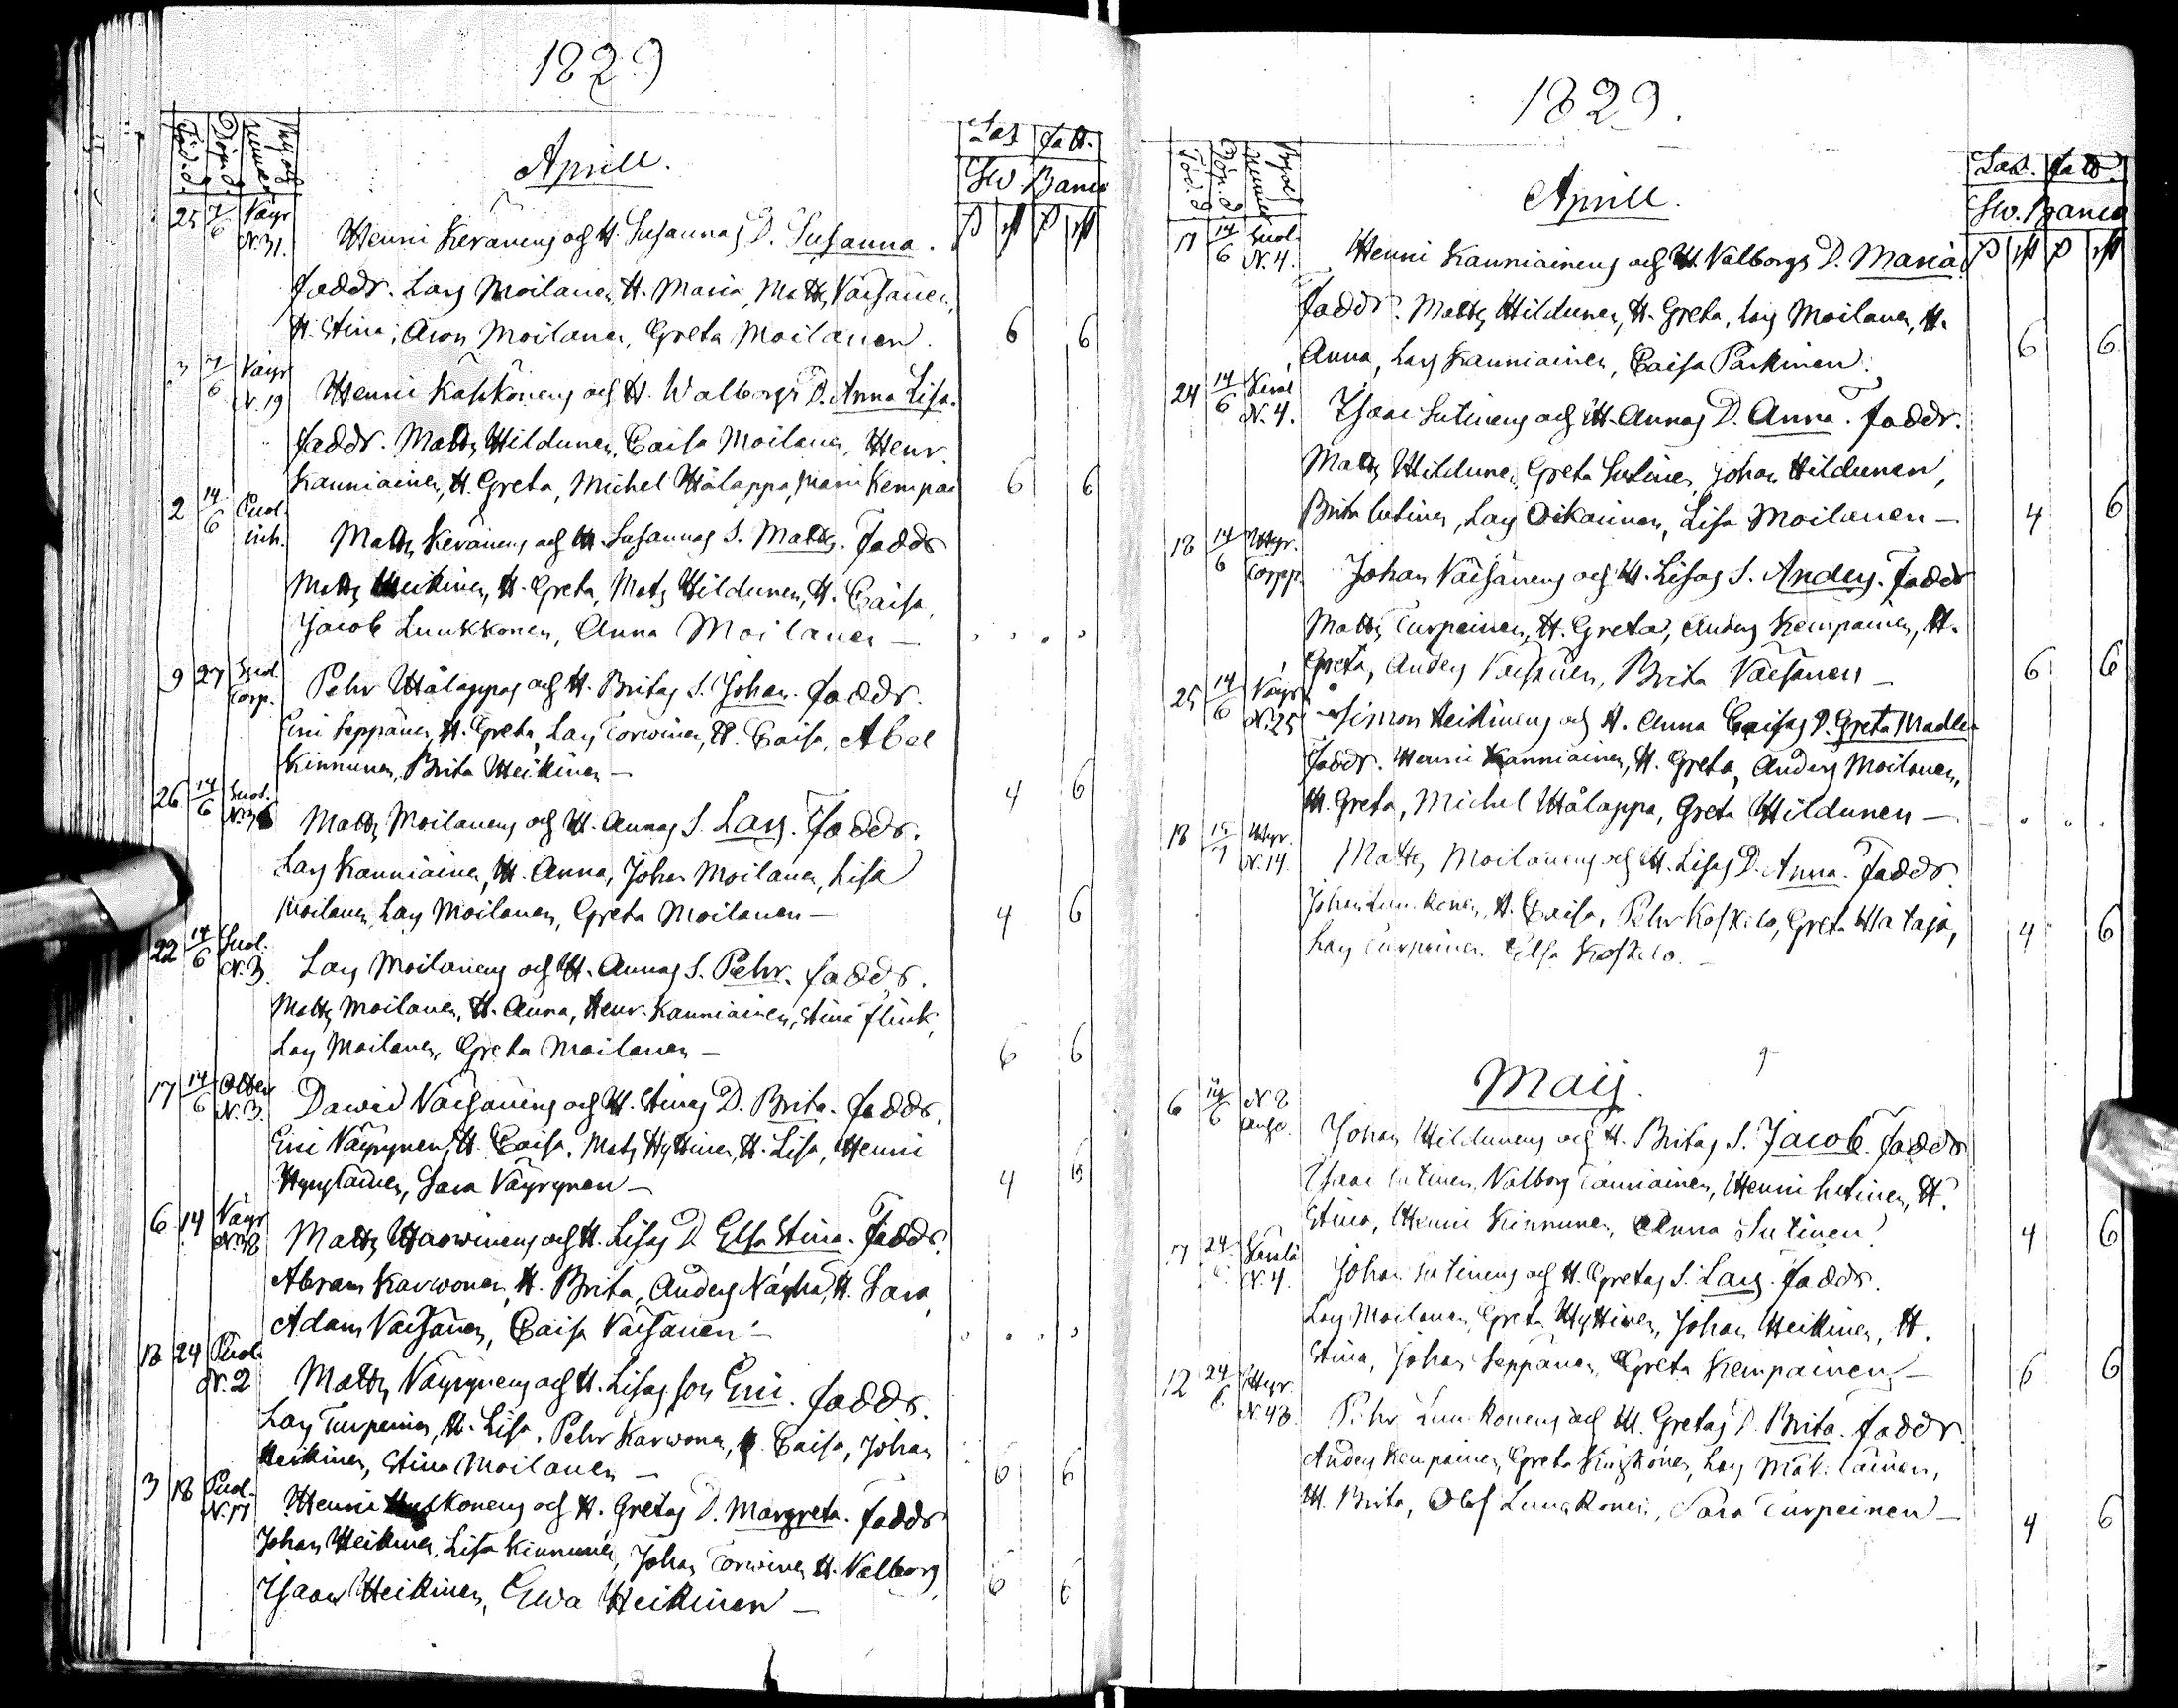 1829
Aprill.
Föd. d. Döp. d. By och Numer
Las fatt.
Sw. Banco
25 7/6 Väyr N.31. Henric Keränens och H. Susannas D. Susanna.
faddr. Lars Moilanen, H. Maria, Matts Väisänen,
H. Stina, Aron Moilanen, Greta Moilanen. 6 6
3 7/6 Väyr N.19 Henric Kähkönens och H. Walborgs D. Anna Lisa.
faddr. Matts Hildunen, Caisa Moilanen, Henr.
Kanniainen, H. Greta, Michel Hålappa, Maria Kempai 6 6
2 14/6 Puol. inh. Matts Keränens och H. Susannas S. Matts. Faddr
Matts Heikinen, H. Greta, Mats Hildunen, H. Caisa,
Jacob Luukkonen, Anna Moilanen —
9 27 Suol. Torp. Pehr Hålappas och H. Britas S. Johan. faddr.
Eric Seppänen, H. Greta, Lars Torwinen, H. Caisa, Abel
Kinnunen, Brita Heikinen — 4 6
26 14/6 Suol. N.36 Matts Moilanens och H. Annas S. Lars. Faddr.
Lars Kanniainen, H. Anna, Johan Moilanen, Lisa
Moilanen, Lars Moilanen, Greta Moilanen — 4 6
22 14/6 Suol. N.3. Lars Moilanens och H. Annas S. Pehr. faddr.
Matts Moilanen, H. Anna, Henr. Kanniainen, Stina Flink,
Lars Moilanen, Greta Moilanen — 6 6
17 14/6 N.3. Dawid Väisänens och H. Stinas D. Brita. faddr.
Eric Väyrynen, H. Caisa, Mats Hyttinen, H. Lisa, Henric
Hyryläinen, Sara Väyrynen — 4 6
6 14 Väyr N.38 Matts Harwinens och H. Lisas D. Elsa Stina. Faddr.
Abram Karwonen, H. Brita, Anders H. Sara,
Adam Väisänen, Caisa Väisänen —
18 24 Puol. N.2 Matts Väyrynens och H. Lisas son Eric. faddr.
Lars Turpeinen, H. Lisa, Pehr Karwonen, H. Caisa, Johan
Heikinen, Stina Moilanen — 6 6
3 18 Puol. N.17 Henric och H. Gretas D. Margreta. faddr
Johan Heikinen, Lisa Kinnunen, Johan Torwinen H. Valborg,
Isaac Heikinen, Ewa Heikinen — 6 6
1829.
Aprill.
Föd. d. Döp. d. By och Numer
Las. fatt.
Sw. Banco
17 14/6 Suol. N.4. Henric Kanniainens och H. Valborgs D. Maria.
faddr. Matts Hildunen, H. Greta, Lars Moilanen, H.
Anna, Lars Kanniainen, Caisa Parkinen. 6 6
24 14/6 N.4. Isaac Sutinens och H. Annas D. Anna. faddr.
Matts Hildunen, Greta Sutinen, Johan Hildunen,
Brita Sutinen, Lars Oikarinen, Lisa Moilanen — 4 6
18 14/6 Hyr. Torpp. Johan Väisänens och H. Lisas S. Anders. Faddr
Matts Turpeinen, H. Greta, Anders Kempainen, H.
Greta, Anders Väisänen, Brita Väisänen — 6 6
25 14/6 Väyr N.25 Simon Heikinens och H. Anna Caisas D. Greta Madlen
faddr. Henric Kanniainen, H. Greta, Anders Moilanen,
H. Greta, Michel Hålappa, Greta Hildunen —
18 Hyr. N.14. Matts Moilanens och H. Lisas D. Anna. Faddr.
Johan Luukkonen, H. Caisa, Pehr Koskelo, Greta Hataja,
Lars Turpeinen Elsa Koskelo. — 4 6
Maij.
6 14/6 N.8 Johan Hildunens och H. Britas S. Jacob. Faddr
Isaac Sutinen, Valborg Kanniainen, Henric Sutinen, H.
Stina, Henric Kinnunen, Anna Sutinen. 4 6
17 24 N.4. Johan Sutinens och H. Gretas S. Lars. faddr.
Lars Moilanen, Greta Hyttinen, Johan Heikinen, H.
Stina, Johan Seppänen, Greta Kempainen — 6 6
12 24/6 Hyr. N.48. Pehr Luukkonens och H. Gretas D. Brita. faddr.
Anders Kempainen, Greta Lars Mäkeläinen,
H. Brita, Olof Luukkonen, Sara Turpeinen — 4 6